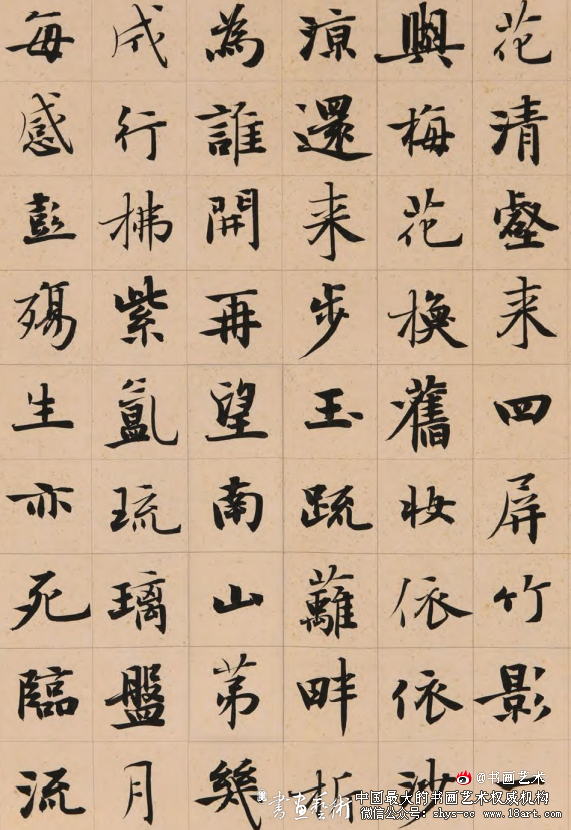 花清壑来四屏竹影
與梅花換舊妆依依沙
凉還来步玉疏蘺畔
為誰開再望南山苐幾
成行拂紫氳琉璃盤月
每感彭殤生亦死臨流
@书画艺术
書畫藝術
中国最大的书画艺术权威机构
微信公众号: shys-cc www.18art.com